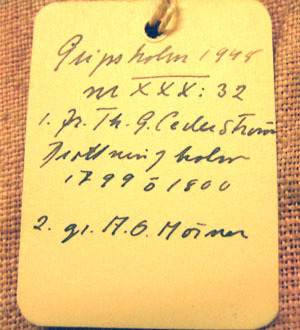 Gripsholm 1948
nr XXX: 32
1. fr. Th. G. Cederström
Drottningholm
1799 ō 1800
2. gr. A. G. Mörner